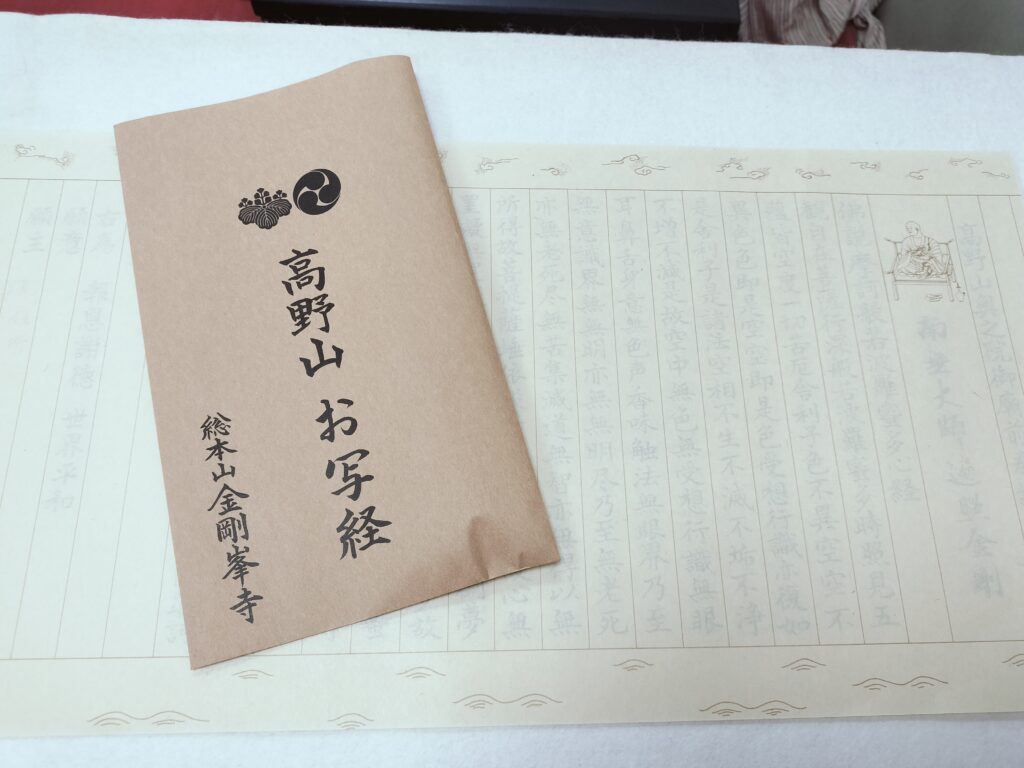 高野山 お写経
総本山金剛峯寺
高野山奥之院御廟前
南無大師遍照金剛
佛説摩訶般若波羅蜜多心経
観自在菩薩行深般若波羅蜜多時照見五
蘊皆空度一切苦厄舎利子色不異空空不
異色色即是空空即是色受想行識亦復如
是舎利子是諸法空相不生不滅不垢不浄
不増不減是故空中無色無受想行識無眼
耳鼻舌身意無色声香味触法無眼界乃至
無意識界無無明亦無無明尽乃至無老死
亦無老死尽無苦集滅道無智亦無得以無
所得故菩提薩埵
無
夢
故
報恩謝徳 世界平和
願意
願主